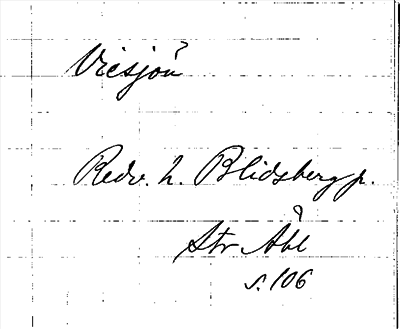 Vicsjön
Redv. h. Blidsberg p.
Str Åbl
s. 106